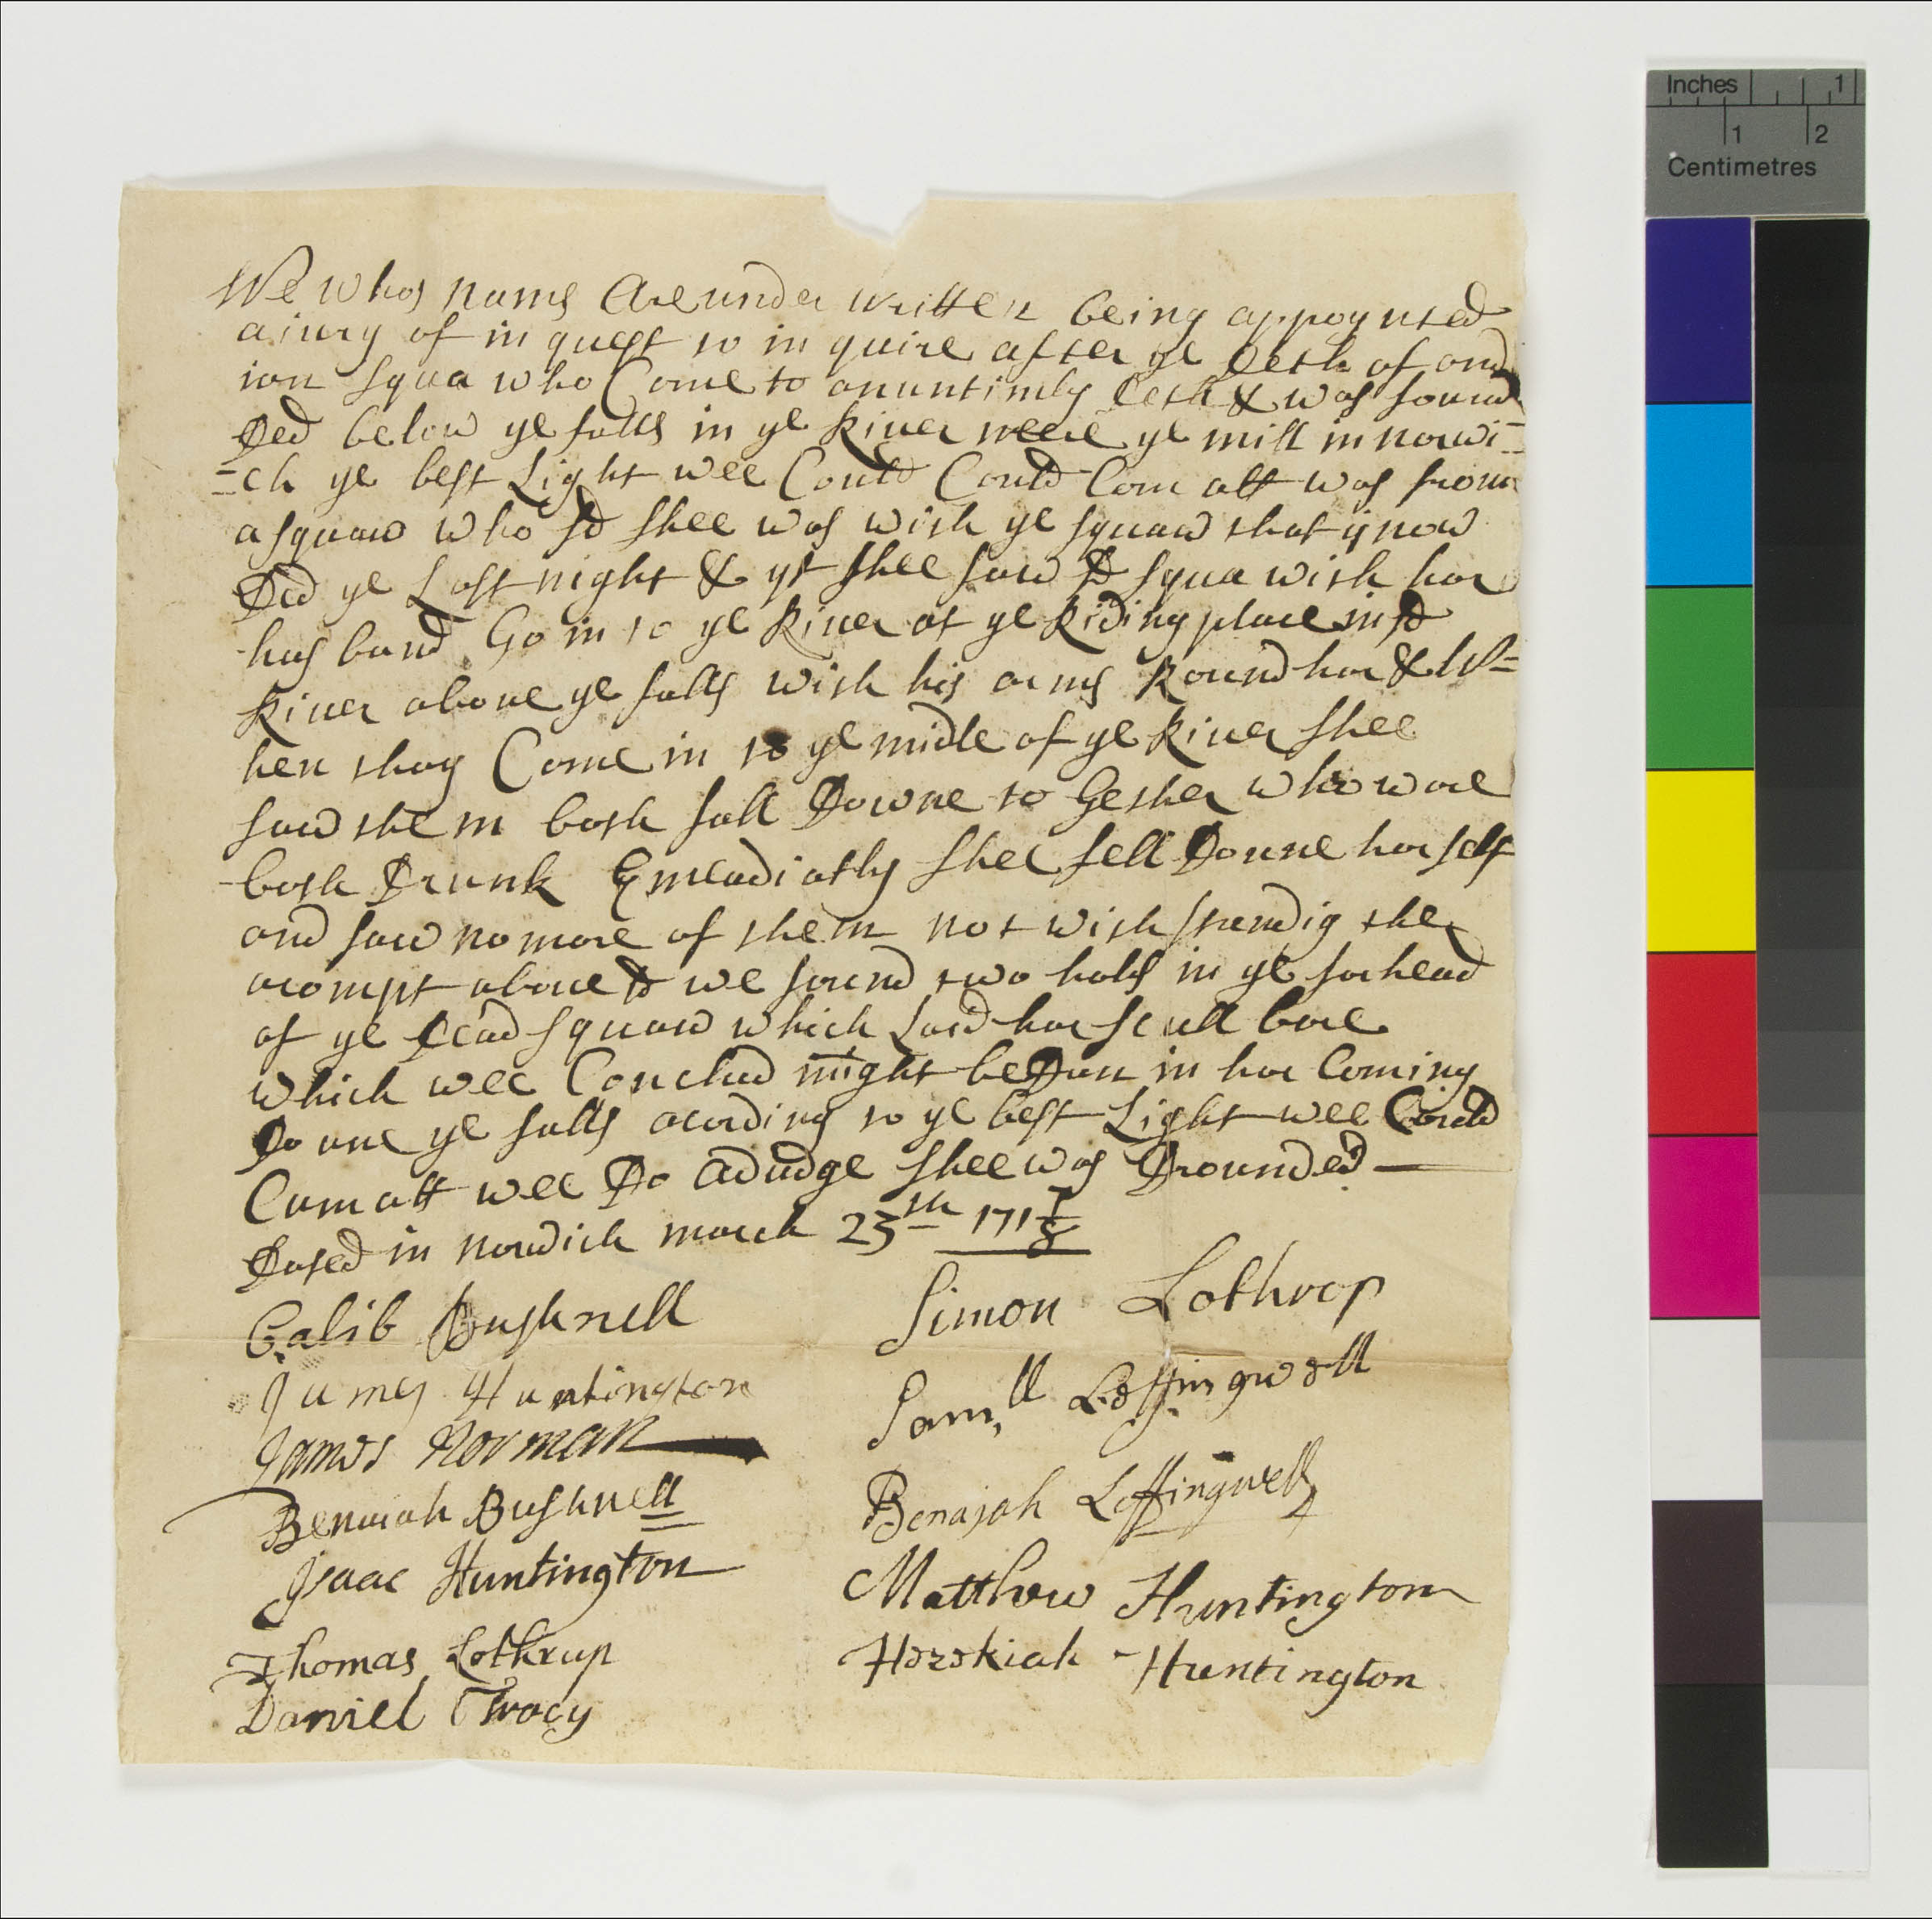 We whos nams Are under written being appoynted
a iury of in quest to in quire after ye Deth of and
ian squa who Come to an untimly Deth & was found
Ded below ye falls in ye River neere ye mill in norwi=
=ch ye best Light wee Could Could Com att was from
a squaw who sd shee was with ye squaw that is now
Ded ye Last night & yt shee saw sd squa with har
hasband Go in to ye River at ye Riding place in sd
River above ye falls with his arms Round har & W=
hen thay Come in to ye midle of ye River shee
saw them both fall Downe to Gether who ware
both Drunk Emeadiatly shee fell Doune harself
and saw no more of them not with standig the
acompt above sd we found two hols in ye forhead
of ye Dead squaw which Laid har scull bare
which wee Conclud might be Dun in har Coming
Doune ye falls acording to ye best Light wee Could
Cum att wee Do adudge shee was Drounded
Dated in nordich march 25th 171 7/8
Calib Bushnell
Simon Lothrop
James Huntington
Samll Leffingwell
James Norman
Benajah Leffingwell
Benaiah Bushnell
Matthew Huntington
Isaac Huntington
Hezekiah Huntington
Thomas Lothrup
Daniel Tracy
Inches 1
1 2
Centimetres